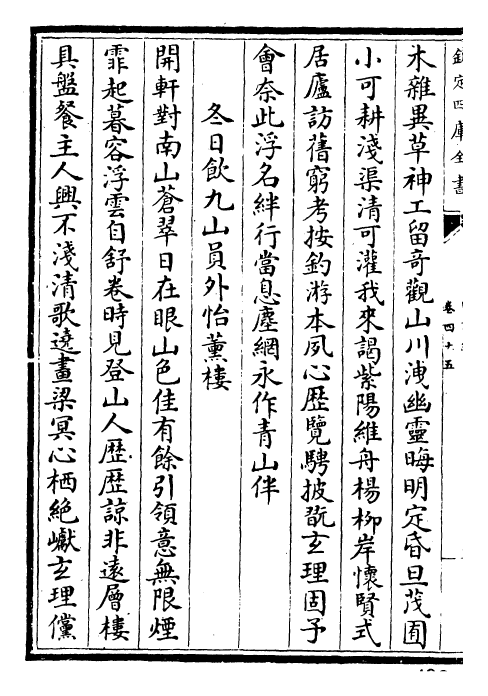 欽定四庫全書
卷四十五
木雜異草神工留奇觀山川洩幽靈晦明定昏旦茂囿
小可耕淺渠清可灌我來謁紫陽維舟楊柳岸懷賢式
居廬訪舊窮考按釣游本夙心歴覽騁披翫玄理固予
會奈此浮名絆行當息塵網永作青山伴
冬日飲九山員外怡薰樓
開軒對南山蒼翠日在眼山色佳有餘引領意無限煙
霏起暮容浮雲自舒卷時見登山人歴歴諒非遠層樓
具盤餐主人興不淺清歌遶畫梁冥心栖絶巘玄理儻